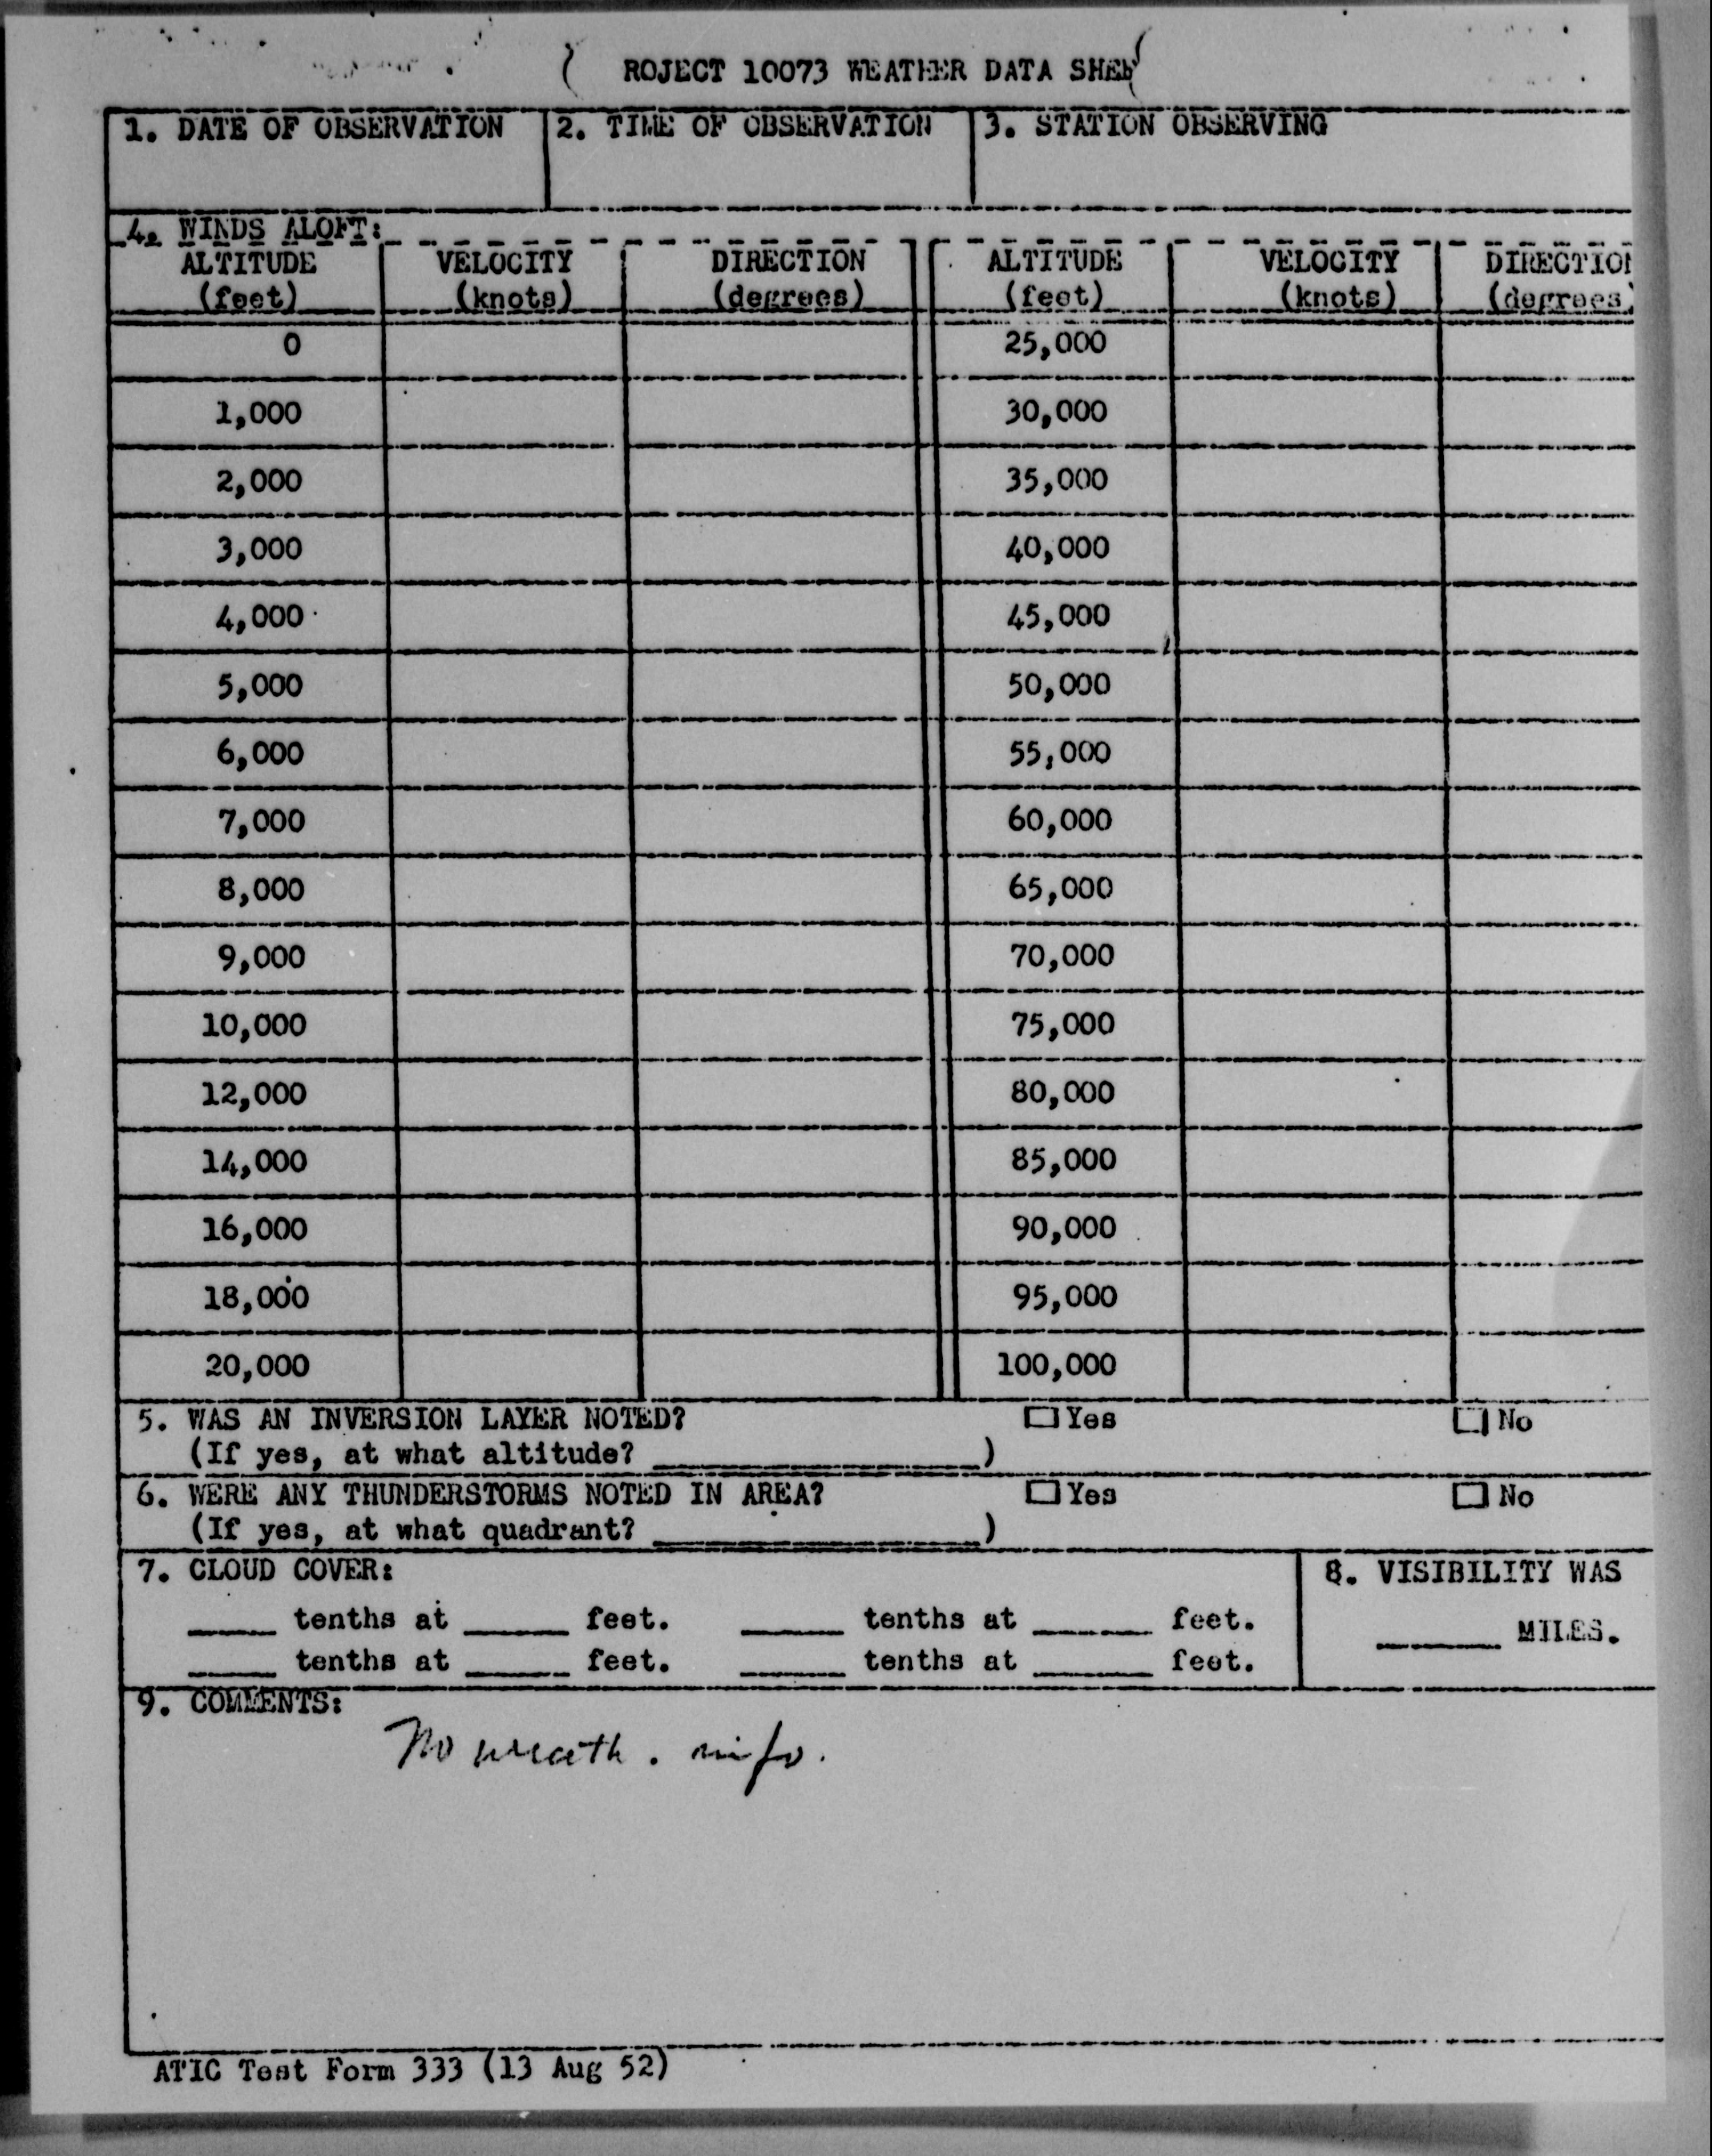 ROJECT 10073 WEATHER DATA SHEE
1. DATE OF OBSERVATION 2. TIME OF OBSERVATION 3. STATION OBSERVING
4. WINDS ALOFT:
ALTITUDE VELOCITY DIRECTION ALTITUDE VELOCITY DIRECTION
(feet) (knots) (degrees) (feet) (knots) (degrees)
0 25,000
1,000 30,000
2,000 35,000
3,000 40,000
4,000 45,000
5,000 50,000
6,000 55,000
7,000 60,000
8,000 65,000
9,000 70,000
10,000 75,000
12,000 80,000
14,000 85,000
16,000 90,000
18,000 95,000
20,000 100,000
5. WAS AN INVERSION LAYER NOTED? Yes No
(If yes, at what altitude? )
6. WERE ANY THUNDERSTORMS NOTED IN AREA? Yes No
(If yes, at what quadrant? )
7. CLOUD COVER: 8. VISIBILITY WAS
tenths at feet. tenths at feet. MILES.
tenths at feet. tenths at feet.
9. COMMENTS:
No weath. info.
ATIC Test Form 333 (13 Aug 52)